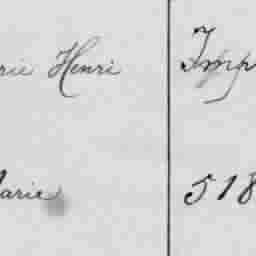 rie Henri Imp
arie 518